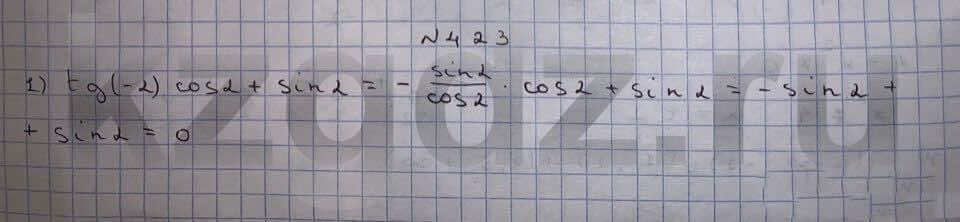 N 423
1) tg(-α) cosα + sinα = - sinα/cosα · cosα + sinα = - sinα +
+ sinα = 0
zadz.ru